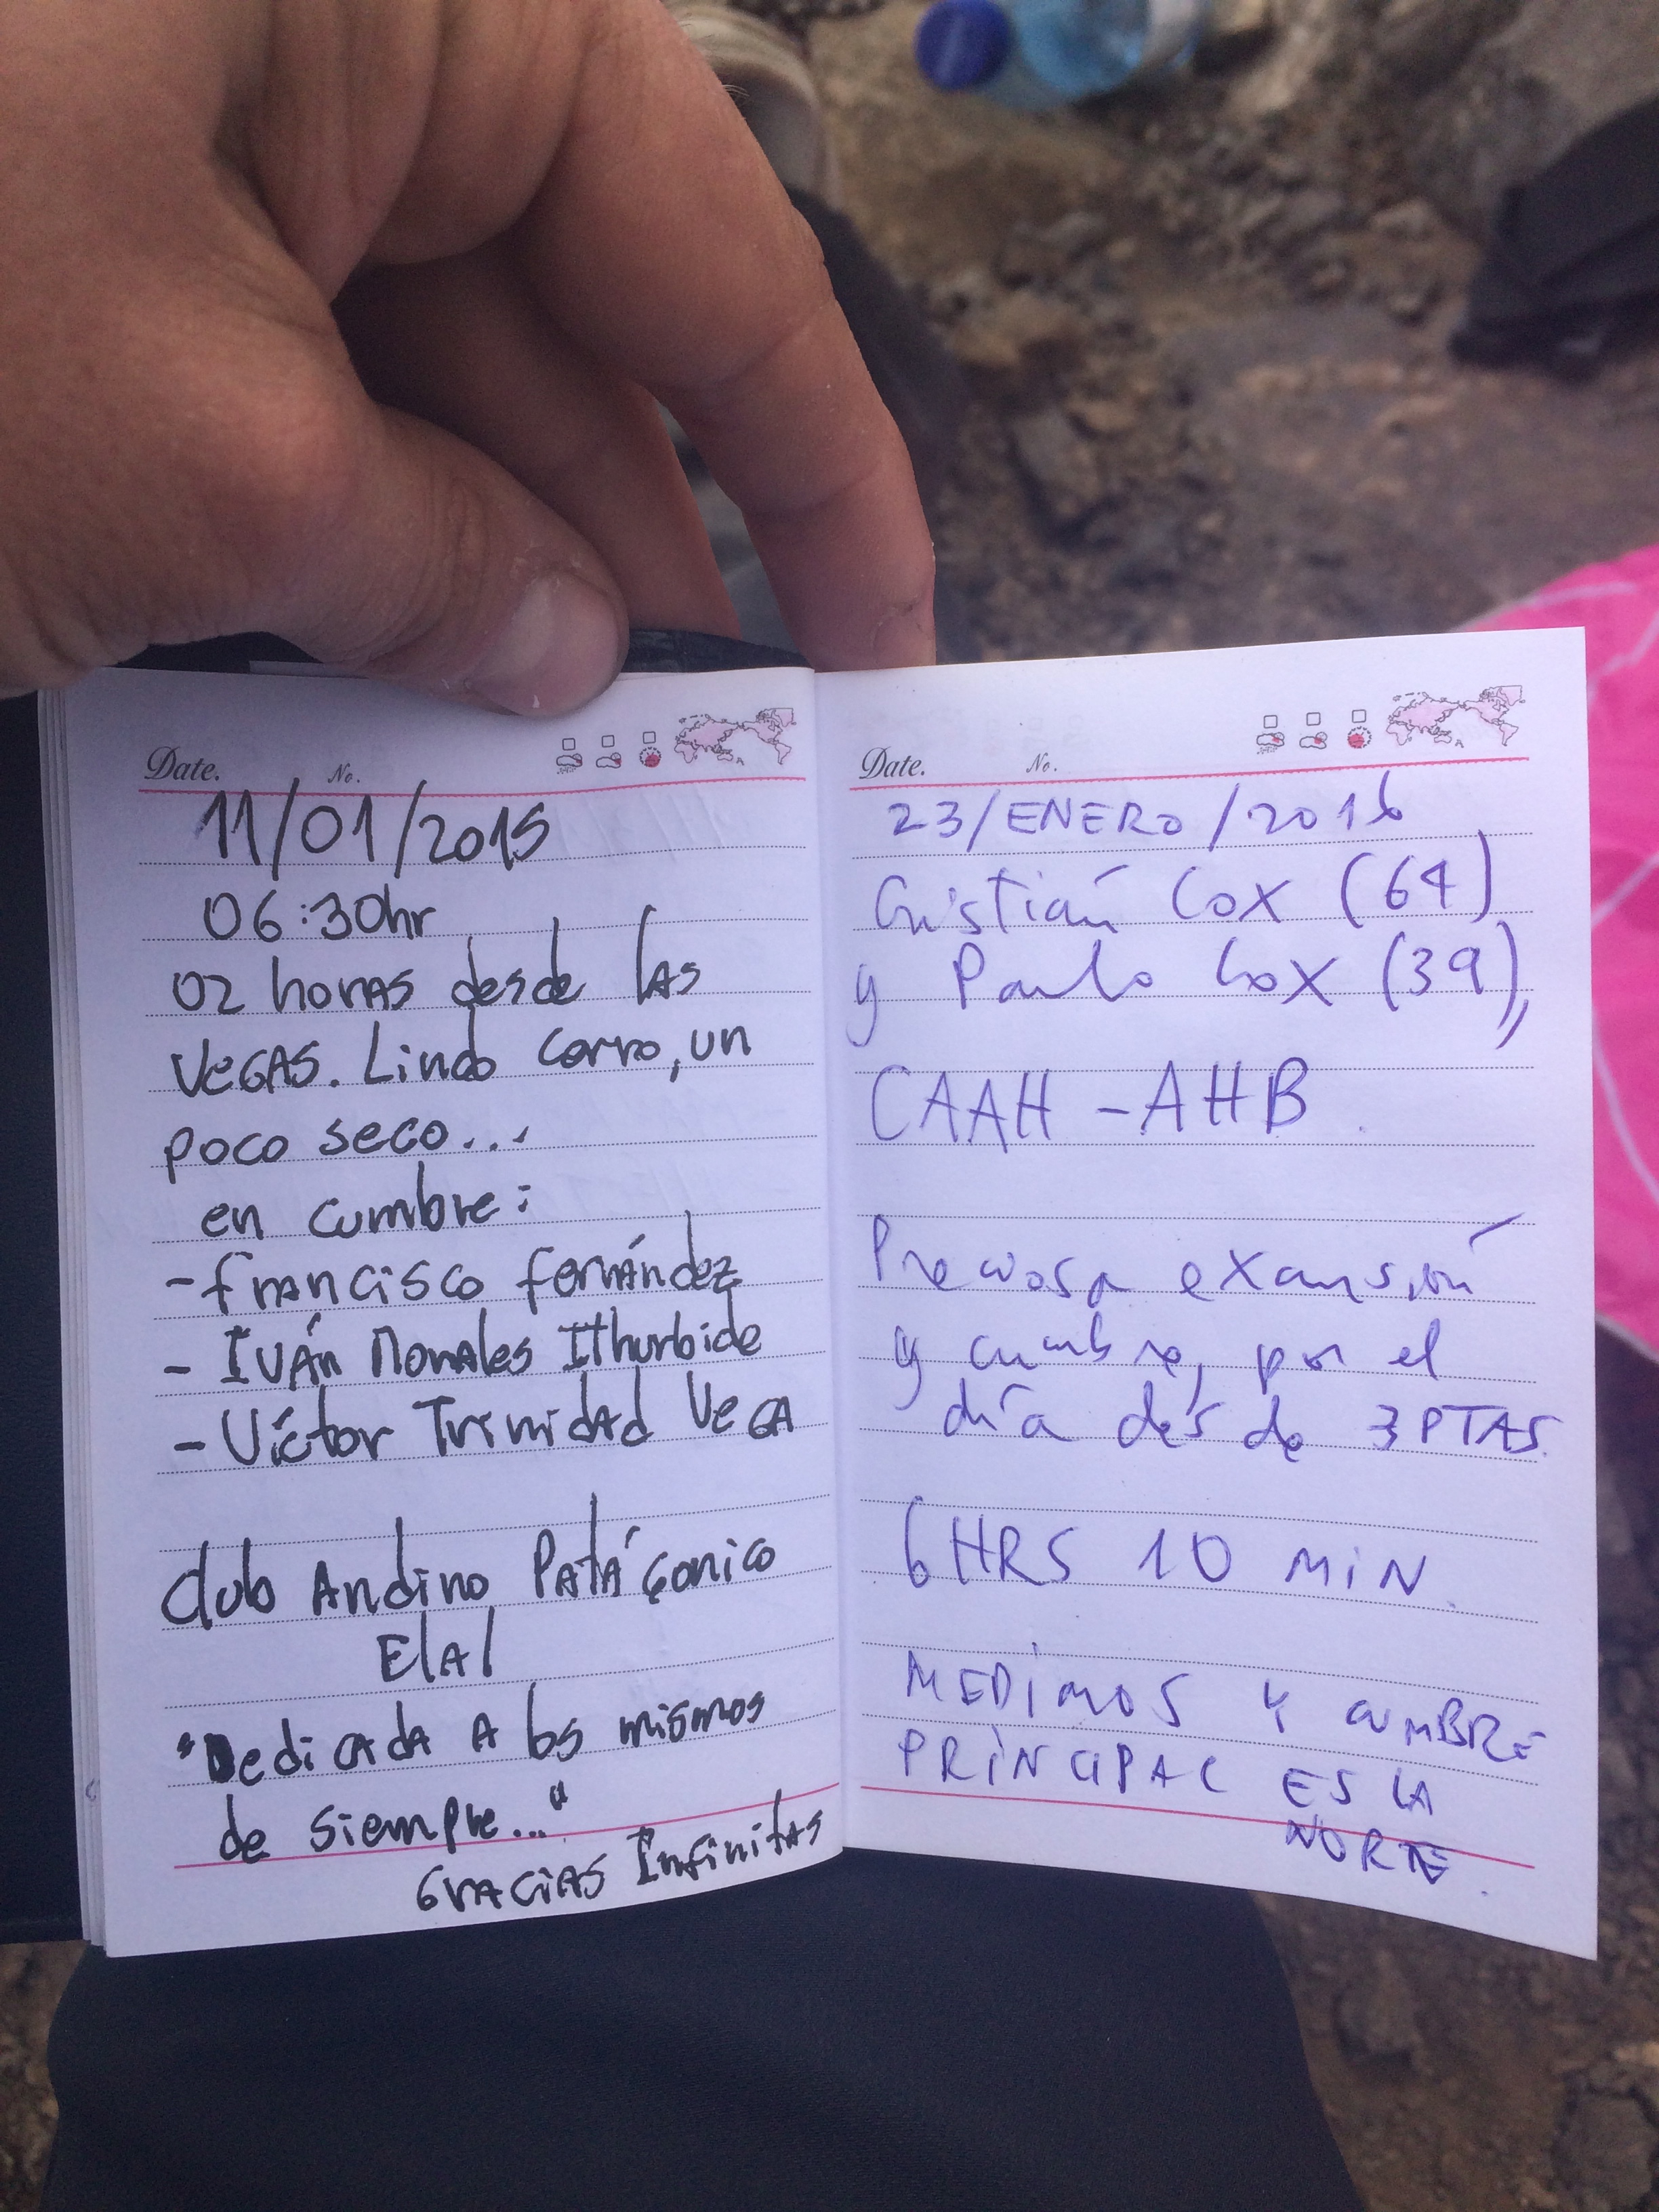 Date. No.
11/01/2015
06:30hr
02 horas desde las
Vegas. Lindo cerro, un
poco seco...
en cumbre:
- Francisco Fernández
- Iván Morales Ithurbide
- Víctor Trinidad Vega
Club Andino Patagónico
Elal
"Dedicada a los mismos
de siempre..."
Gracias Infinitas
Date. No.
23/ENERO/2016
Cristián Cox (64)
y Paulo Cox (39),,
CAAH - AHB.
Preciosa excursión
y cumbre, por el
día desde 3 PTAS.
6 HRS 10 MIN.
MEDIMOS Y CUMBRE
PRINCIPAL ES LA
NORTE.